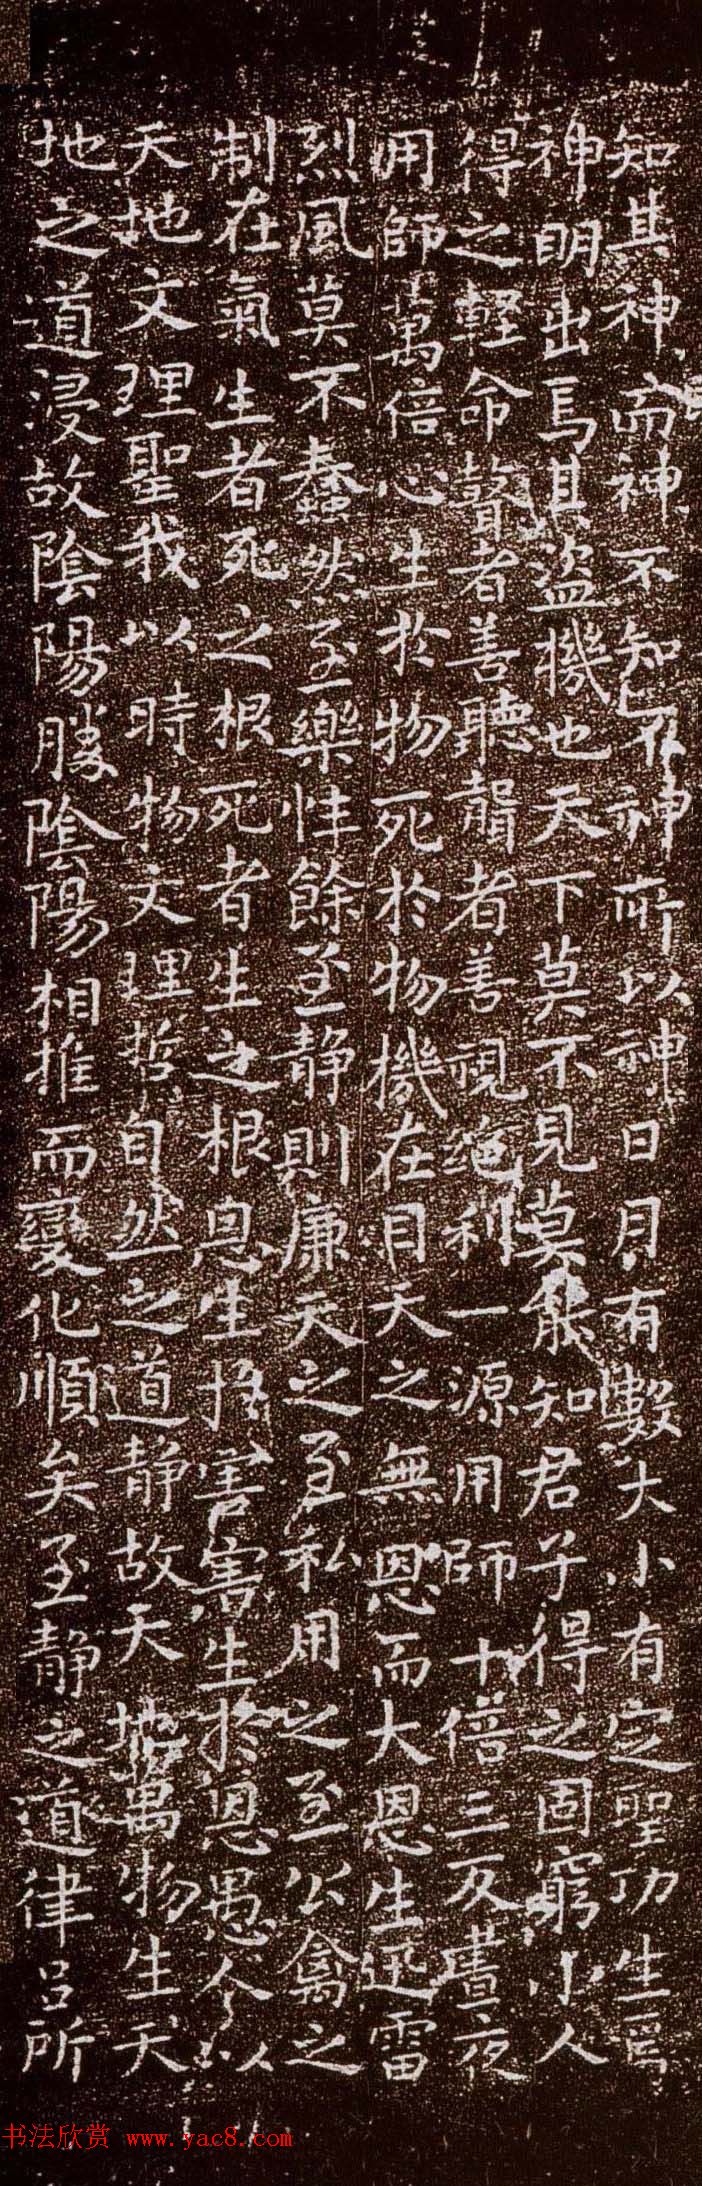 知其神而神不知不神所以神日月有數大小有定聖功生焉
神明出焉其盜機也天下莫不見莫能知君子得之固窮小人
得之輕命瞽者善聽聾者善視絕利一源用師十倍三反晝夜
用師萬倍心生於物死於物機在目天之無恩而大恩生迅雷
烈風莫不蠢然至樂性餘至静則廉天之至私用之至公禽之
制在氣生者死之根死者生之根恩生於害害生於恩愚人以
天地文理聖我以時物文理哲自然之道静故天地萬物生天
地之道浸故陰陽勝陰陽相推而變化順矣至静之道律吕所
书法欣赏 www.yac8.com